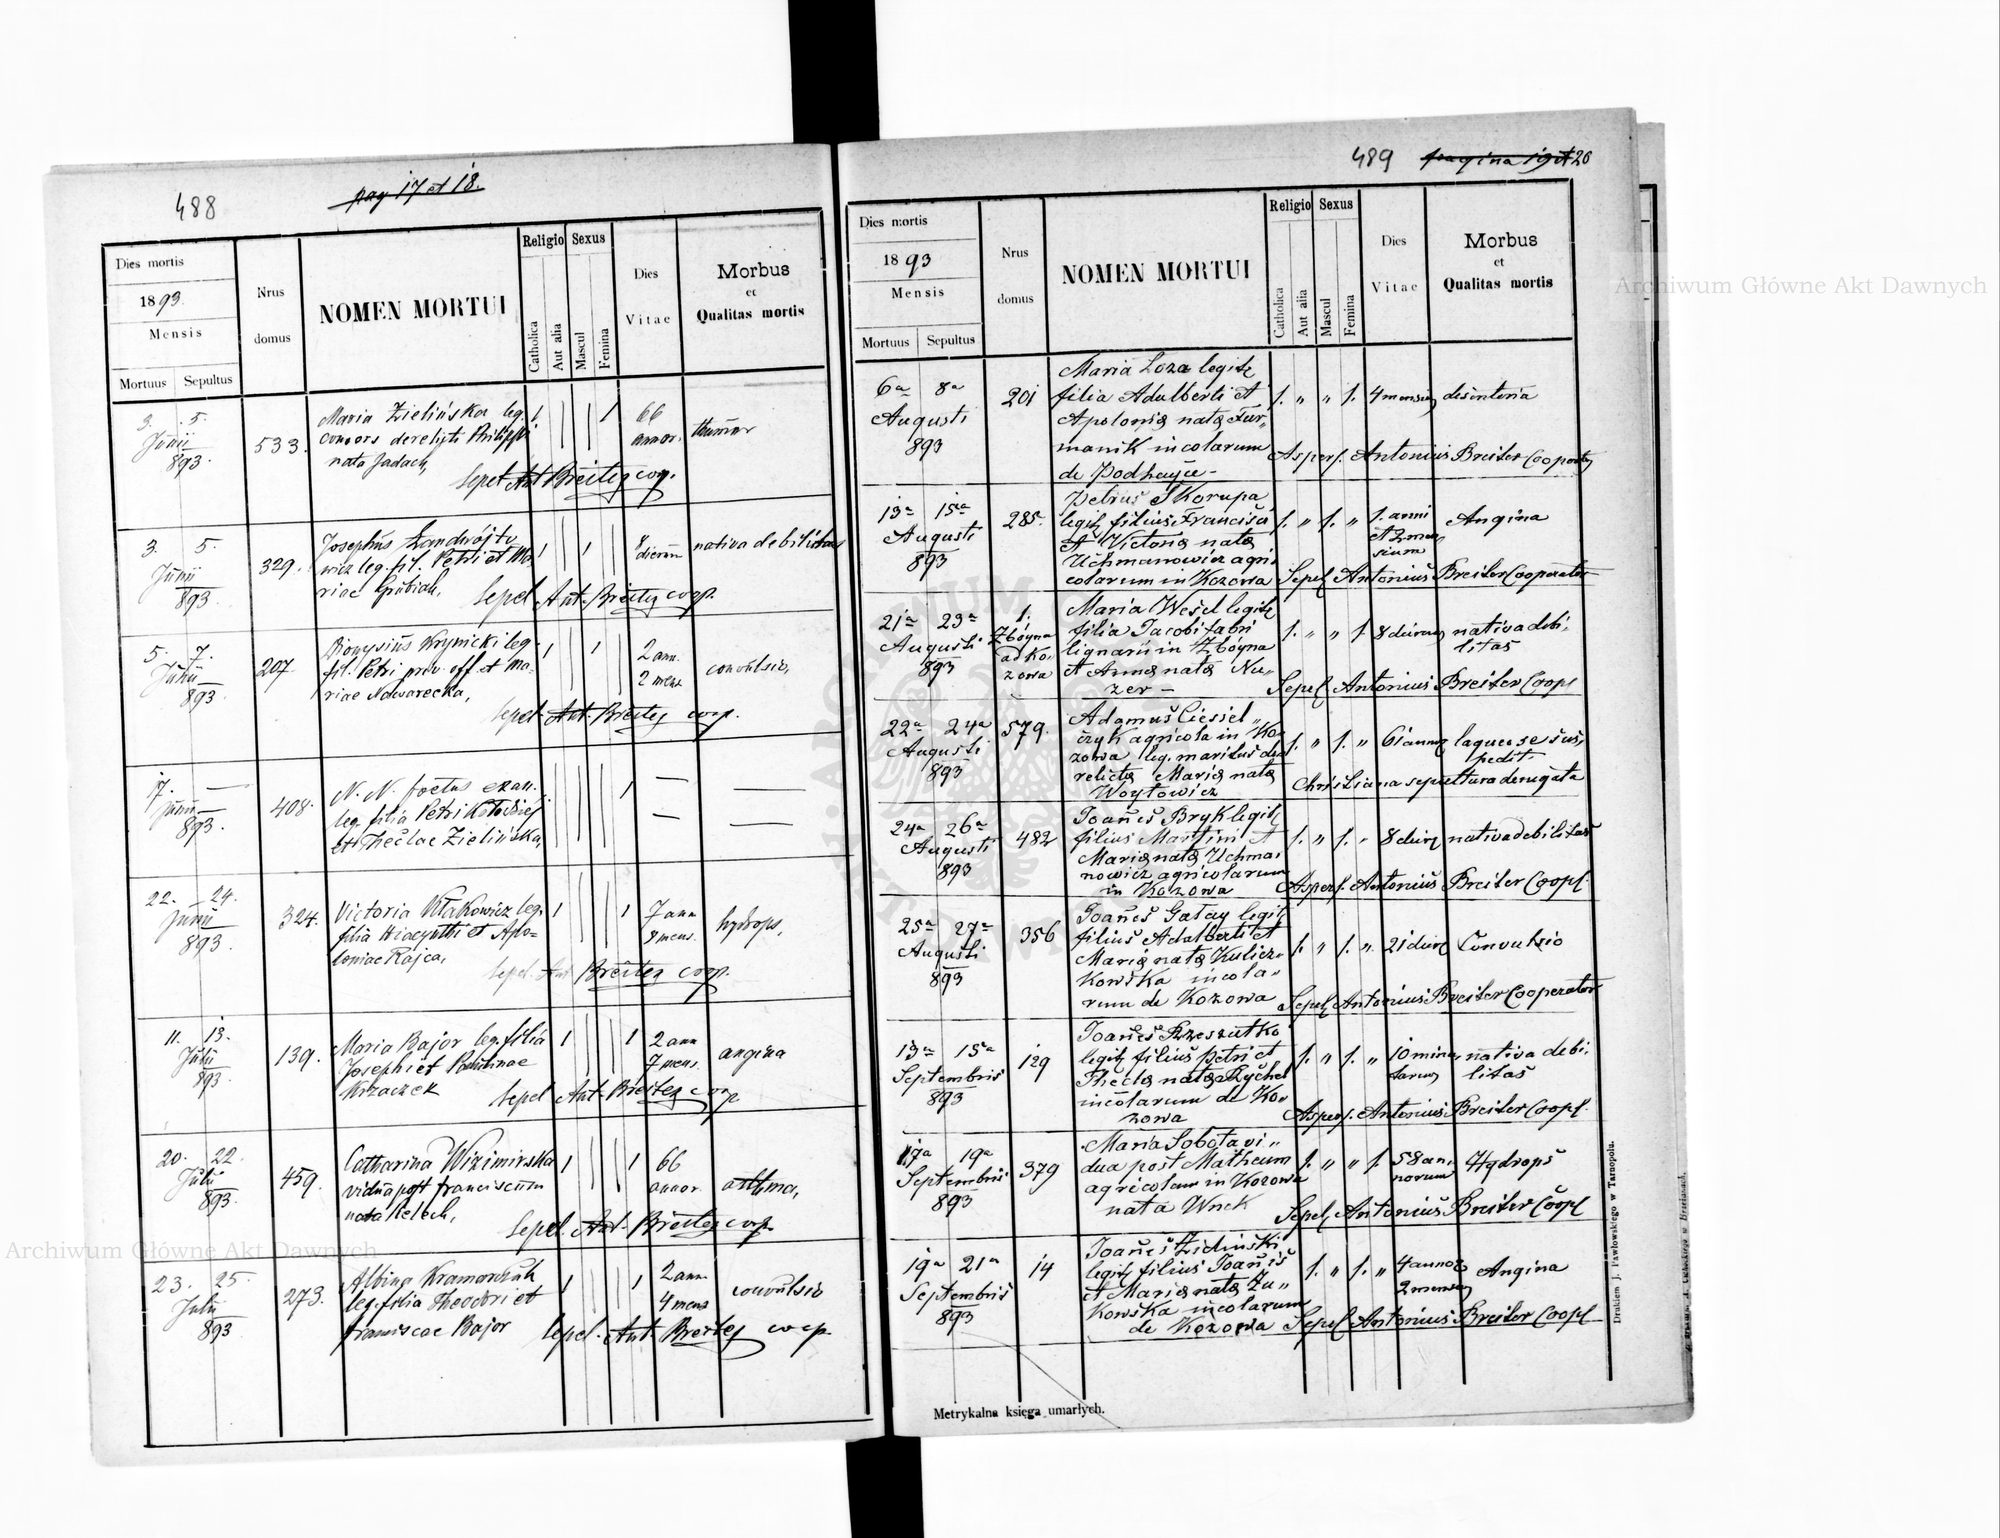 488
pag 17 et 18.
Dies mortis
1893.
Mensis
Mortuus Sepultus
Nrus
domus
NOMEN MORTUI
Religio
Catholica
Aut alia
Sexus
Mascul
Femina
Dies
Vitae
Morbus
et
Qualitas mortis
3. 5.
Junii
893.
533.
Maria Zielińska leg.
consors derelicti Philippi
nata Jadach,
1 1
66
annor.
Sepel Ant Breiter coop.
3. 5.
Junii
893.
329.
Josephus
leg. fil. Petri et Ma-
riae
1 1
8
dierum
nativa debilitas
Sepel Ant. Breiter coop.
5. 7.
Junii
893
207.
Dionysius Krynicki leg.
fil. Petri priv. off. et Ma-
riae Adwarecka,
1 1
2 ann.
2 mens
convulsio,
Sepel. Ant. Breiter coop.
17. —
Junii
893.
408.
N. N. foetus exan.
leg. filia Petri
et Theclae Zielińska,
1
— —
— —
22. 24.
Junii
893.
324.
Victoria Kłakowicz leg.
filia Hiacynthi et Apo-
loniae Rajca,
1 1
7 ann
8 mens.
hydrops,
Sepel. Ant. Breiter coop.
11. 13.
Julii
893
139.
Maria Bajor leg. filia
Josephi et Paulinae
Krzaczek
1 1
2 ann
7 mens.
angina
Sepel Ant. Breiter coop
20. 22.
Julii
893.
459.
Catharina Wizimirska
vidua post Franciscum
nata Pelech,
1 1
66
annor.
asthma,
Sepel. Ant. Breiter coop.
23. 25.
Julii
893.
273.
Albina Kramarczuk
leg. filia Theodori et
Franciscae Bajor
1 1
2 ann.
4 mens
convulsio
Sepel. Ant. Breiter coop.
489 pagina 19 et 20
Dies mortis
1893
Mensis
Mortuus Sepultus
Nrus
domus
NOMEN MORTUI
Religio
Catholica
Aut alia
Sexus
Mascul
Femina
Dies
Vitae
Morbus
et
Qualitas mortis
6a 8a
Augusti
893
201
Maria Loza legit.
filia Adalberti et
Apolonia nata Fur„
manik incolarum
de Podhayce —
1. „ „ 1.
4 mensium
disinteria
Aspers. Antonius Breiter Cooperator
13a 15a
Augusti
893
285.
Petrus Skorupa
legit. filius Francisci
et Victoria nata
Uchmanowicz agri
colarum in Kozowa
1. „ 1. „
1. anni
et 2 men
sium
Angina
Sepel. Antonius Breiter Cooperator
21a 23a
Augusti
893
1.
Zbóyna
ad Ko„
zowa
Maria Wesel legit.
filia Jacobi fabri
lignarii in Zbóyna
et Anna nata Nu„
zer —
1. „ „ 1.
8 dierum
nativa debi„
litas
Sepel. Antonius Breiter Coopl
22a 24a
Augusti
893
579.
Adamus Ciesiel„
czyk agricola in Ko„
zowa leg. maritus de
relicta Maria nata
Woytowicz
1. „ 1. „
61 annor
laqueo se sus„
pedit.
Christiana sepultura denegata
24a 26a
Augusti
893
482
Joanes Bryk legit.
filius Martini et
Maria nata Uchma„
nowicz agricolarum
in Kozowa
1. „ 1. „
8 dier.
nativa debilitas
Aspers. Antonius Breiter Coopl.
25a 27a
Augusti
893
356
Joanes Gałay legit.
filius Adalberti et
Maria nata Kulicz„
kowska incola„
rum de Kozowa
1. „ 1. „
21 dier.
Convulsio
Sepel. Antonius Breiter Cooperator
13a 15a
Septembris
893
129
Joanes Rzeszutko
legit. filius Petri et
Thecla nata Rychel
incolarum de Ko„
zowa
1. „ 1. „
10 minu„
tarum
nativa debi„
litas
Aspers. Antonius Breiter Coopl.
17a 19a
Septembris
893
379
Maria Sobota vi„
dua post Matheum
agricolam in Kozowa
nata Wnek
1. „ „ 1.
58 an„
norum
Hydrops
Sepel. Antonius Breiter Coopl
19a 21a
Septembris
893
14
Joanes Zieliński
legit. filius Joanis
et Maria nata Żu„
kowska incolarum
de Kozowa
1. „ 1. „
4 annor
2 mensium
Angina
Sepel. Antonius Breiter Coopl
Metrykalna księga umarłych.
Drukiem J. Pawłowskiego w Tarnopolu.
Archiwum Główne Akt Dawnych
Archiwum Główne Akt Dawnych